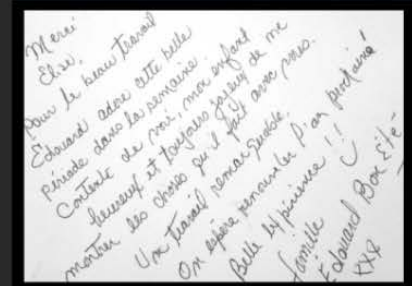 Merci
Elise,
Pour le beau travail
Edouard adore cette belle
période dans la semaine.
Contente de voir, mon enfant
heureux et toujours joyeux de me
montrer les choses qu'il fait avec vous.
Un travail remarquable.
On espère renouveler l'an prochaine!
Belle expérience!!
famille
Edouard Bon Été-
XXX